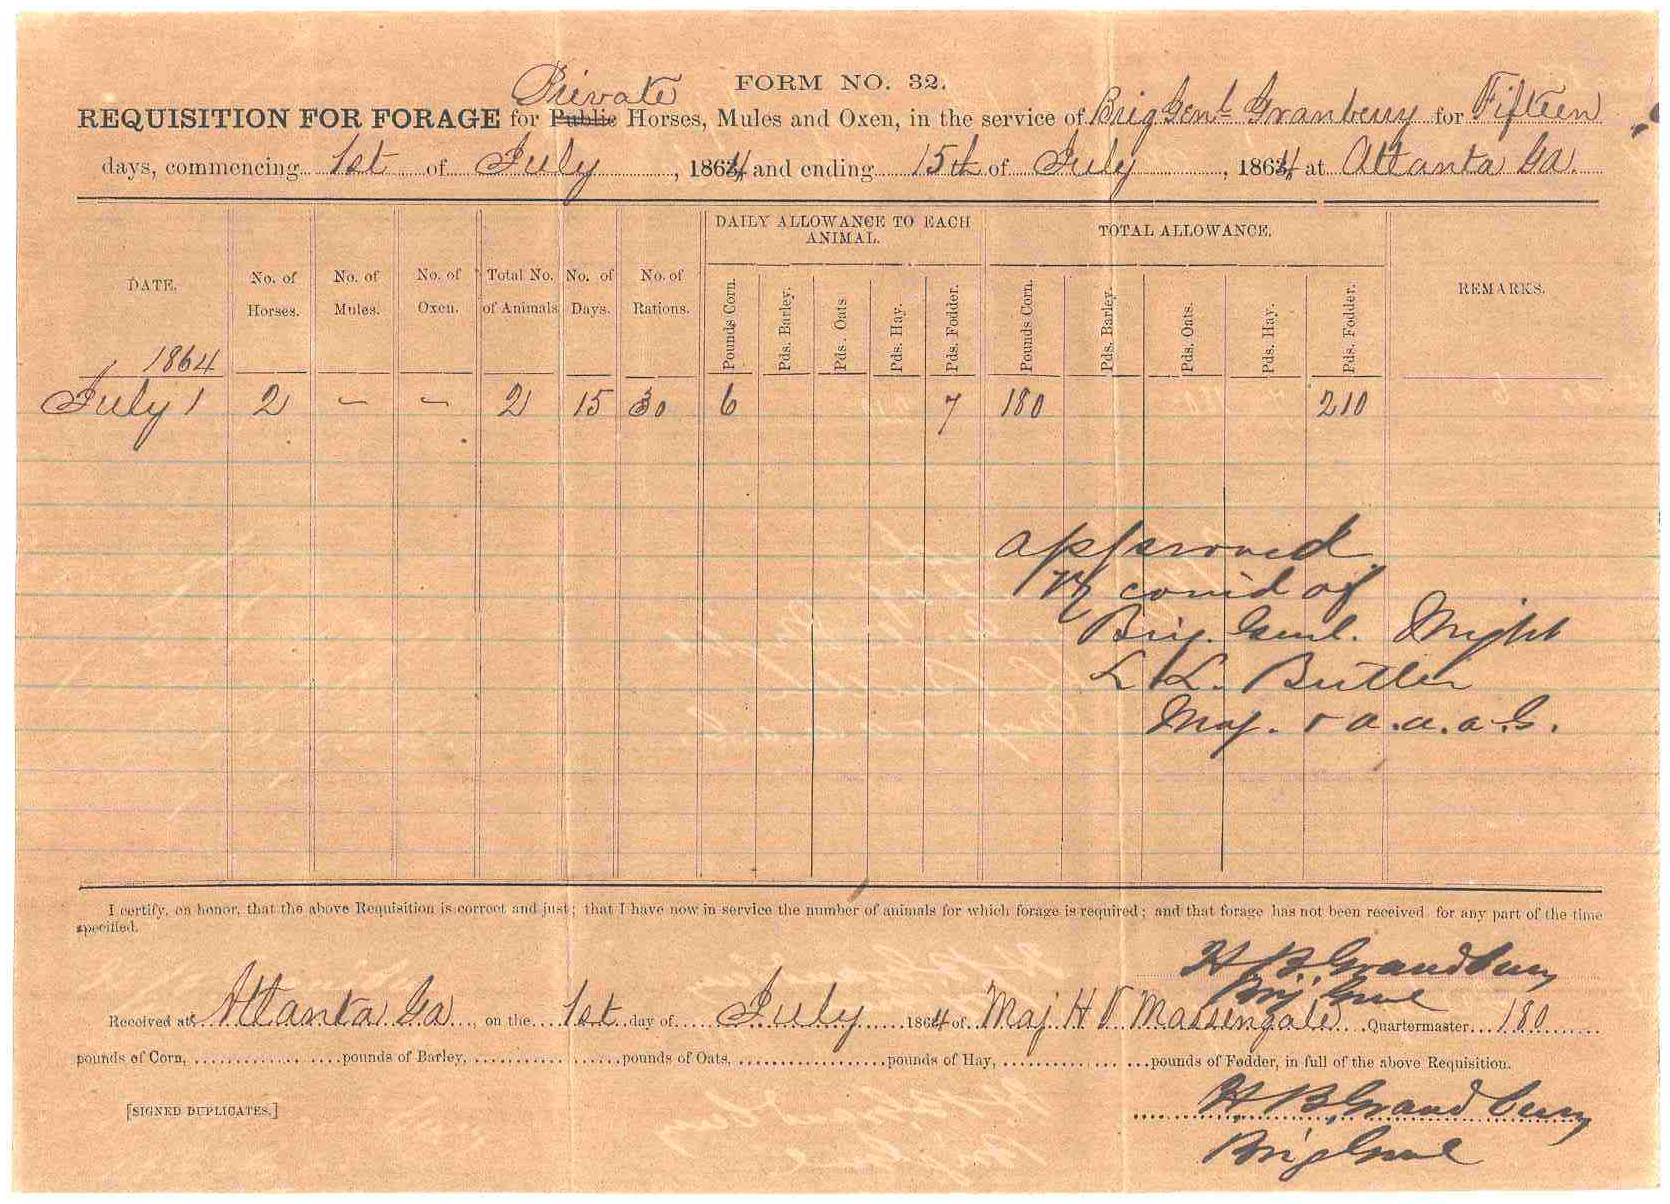 FORM NO. 32.
Private
REQUISITION FOR FORAGE for Public Horses, Mules and Oxen, in the service of Brig Genl Granberry for Fifteen
days, commencing 1st of July, 1864 and ending 15th of July, 1864 at Atlanta Ga.
DAILY ALLOWANCE TO EACH ANIMAL. TOTAL ALLOWANCE.
DATE. No. of Horses. No. of Mules. No. of Oxen. Total No. of Animals No. of Days. No. of Rations. Pounds Corn. Pds. Barley. Pds. Oats Pds. Hay. Pds. Fodder. Pounds Corn. Pds. Barley. Pds. Oats. Pds. Hay. Pds. Fodder. REMARKS.
1864
July 1 2 – – 2 15 30 6 7 180 210
approved
By comd of
Brig. Genl. Wright
L L. Butler
Maj. & a.a.a.G.
I certify, on honor, that the above Requisition is correct and just; that I have now in service the number of animals for which forage is required; and that forage has not been received for any part of the time
specified.
H B. Grandbury
Brig Genl
Received at Atlanta Ga, on the 1st day of July 1864 of Maj H V Massengale Quartermaster 180
pounds of Corn, pounds of Barley, pounds of Oats, pounds of Hay, pounds of Fodder, in full of the above Requisition.
[SIGNED DUPLICATES.]
H B. Grandbury
Brig Genl